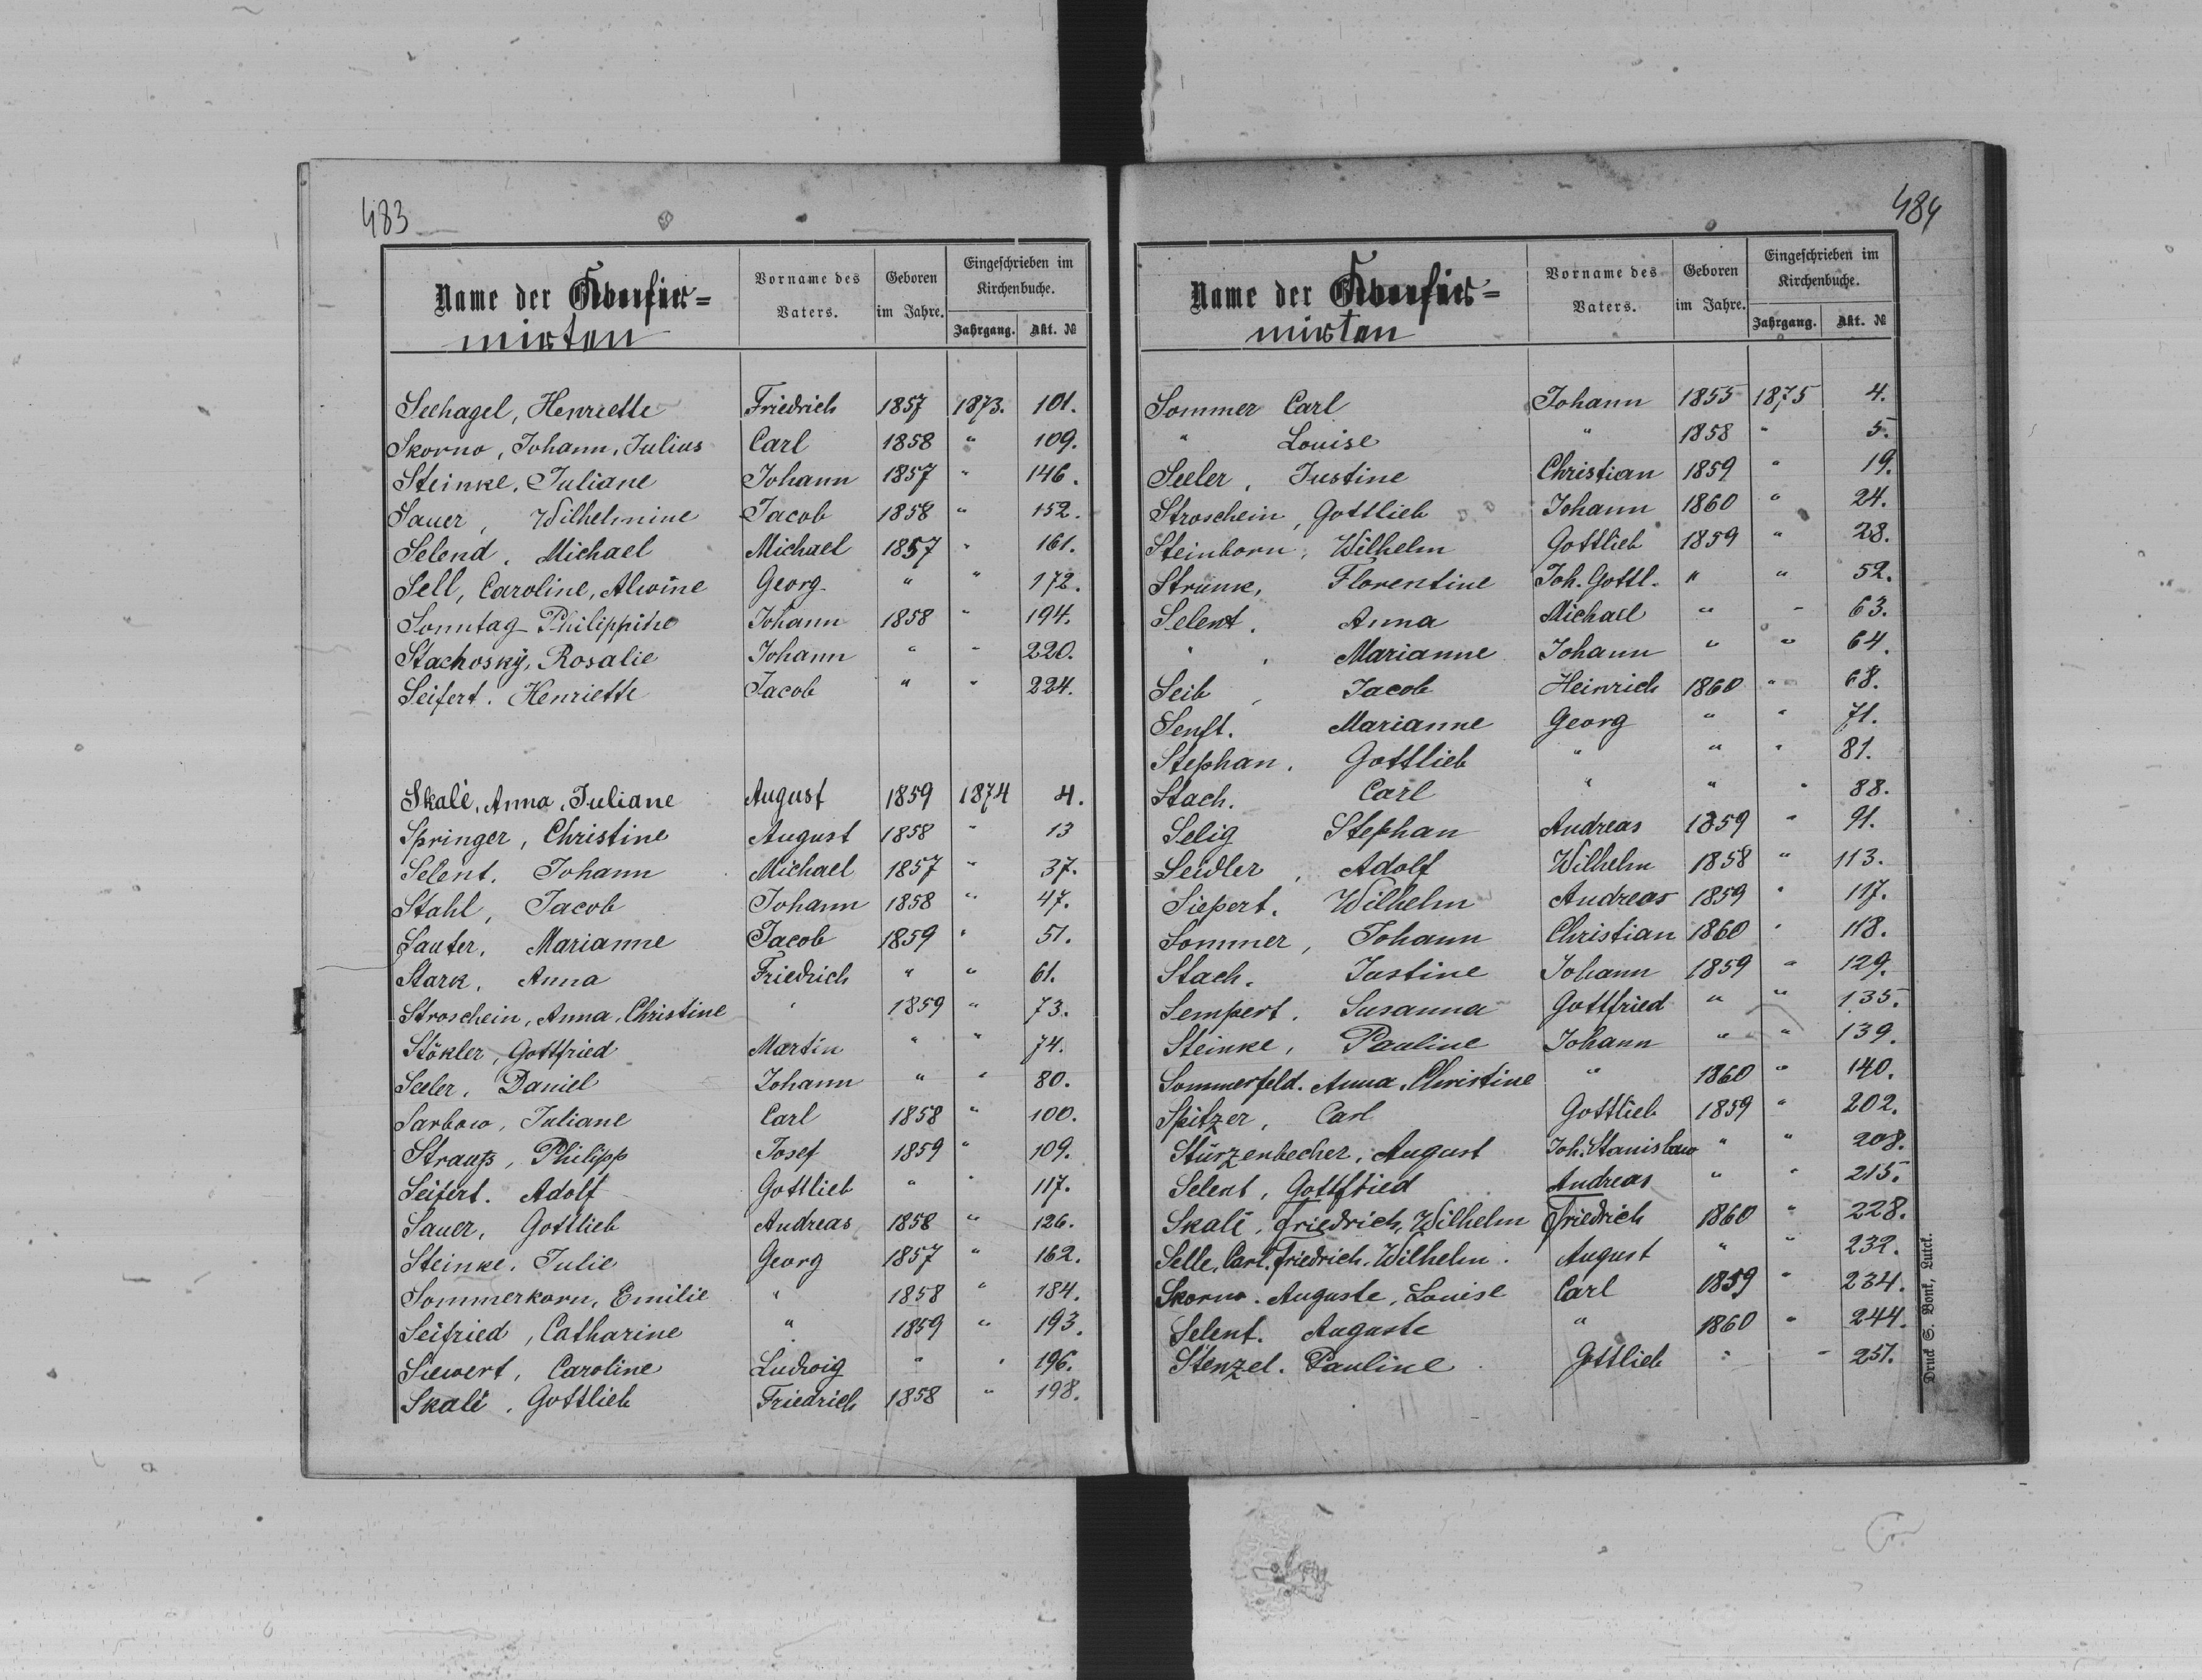 483
Name der Confir=
mirten
Vorname des Vaters.
Geboren im Jahre.
Eingeschrieben im Kirchenbuche.
Jahrgang. Akt. №
Seehagel, Henriette Friedrich 1857 1873. 101.
Skorno, Johann, Julius Carl 1858 " 109.
Steinke, Juliane Johann 1857 " 146.
Sauer, Wilhelmine Jacob 1858 " 152.
Selend, Michael Michael 1857 " 161.
Sell, Caroline, Alwine Georg " " 172.
Sonntag Philippine Johann 1858 " 194.
Stachosky, Rosalie Johann " " 220.
Seifert. Henriette Jacob " " 224.
Skalé, Anna, Juliane August 1859 1874 4.
Springer, Christine August 1858 " 13
Selent, Johann Michael 1857 " 37.
Stahl, Jacob Johann 1858 " 47.
Sauter, Marianne Jacob 1859 " 51.
Stark, Anna Friedrich " " 61.
Stroschein, Anna, Christine " 1859 " 73.
Stökler, Gottfried Martin " " 74.
Seeler, Daniel Johann " " 80.
Sarbow, Juliane Carl 1858 " 100.
Strauß, Philipp Josef 1859 " 109.
Seifert. Adolf Gottlieb " " 117.
Sauer, Gottlieb Andreas 1858 " 126.
Steinke, Julie Georg 1857 " 162.
Sommerkorn, Emilie " 1858 " 184.
Seifried, Catharine " 1859 " 193.
Siewert, Caroline Ludwig " " 196.
Skalé, Gottlieb Friedrich 1858 " 198.
484
Name der Confir=
mirten
Vorname des Vaters.
Geboren im Jahre.
Eingeschrieben im Kirchenbuche.
Jahrgang. Akt. №
Sommer Carl Johann 1855 1875 4.
" Louise " 1858 " 5.
Seeler, Justine Christian 1859 " 19.
Stroschein, Gottlieb Johann 1860 " 24.
Steinborn, Wilhelm Gottlieb 1859 " 28.
Strunk, Florentine Joh. Gottl. " " 52.
Selent, Anna Michael " " 63.
" , Marianne Johann " " 64.
Seib, Jacob Heinrich 1860 " 68.
Senft. Marianne Georg " " 71.
Stephan, Gottlieb " " " 81.
Stach. Carl " " " 88.
Selig Stephan Andreas 1859 " 91.
Seidler, Adolf Wilhelm 1858 " 113.
Siepert. Wilhelm Andreas 1859 " 117.
Sommer, Johann Christian 1860 " 118.
Stach. Justine Johann 1859 " 129.
Sempert. Susanna Gottfried " " 135.
Steinke, Pauline Johann " " 139.
Sommerfeld. Anna, Christine " 1860 " 140.
Spitzer, Carl Gottlieb 1859 " 202.
Stürzenbecher, August Joh. Stanislaw " " 208.
Selent, Gottfried Andreas " " 215.
Skalé, Friedrich, Wilhelm Friedrich 1860 " 228.
Selle, Carl. Friedrich. Wilhelm. August " " 232.
Skorno. Auguste, Louise Carl 1859 " 234.
Selent. Auguste " 1860 " 244.
Stenzel. Pauline Gottlieb " " 251.
Druck S. Bonk, Lutck.